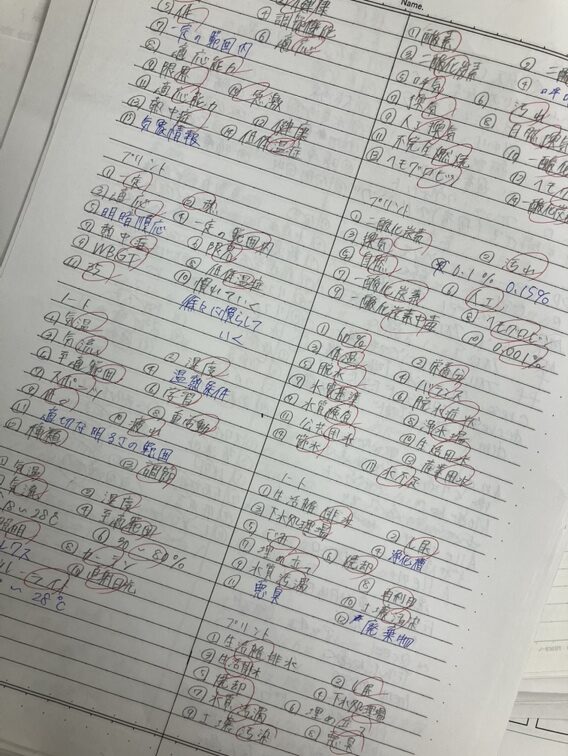 Name.
④ 調節機能
⑤ 体
⑥ 適応
⑦ 一定の範囲内
⑧ 適応能力
⑨ 限界
⑪ 適応能力
⑬ 熱中症
⑫ 健康
⑭ 低体温症
⑮ 気象情報
プリント
① 一定
② 熱
③ 適応
④ 一定の範囲内
⑤ 明暗順応
⑥ 限界
⑦ 熱中症
⑧ 低体温症
⑨ WBGT
⑩ 慣れていく
徐々に慣らして
いく
ノート
① 気温
② 湿度
③ 気流
④ 温熱条件
⑤ 至適範囲
⑥ 学習
⑦ スポーツ
⑧ 重活動
⑪ 適切な明るさの範囲
⑫ 種類
⑬ 調節
① 気温
② 湿度
③ 気流
④ 至適範囲
18～28℃
⑥ 30～80%
⑧ カーテン
⑩ 直射日光
～28℃
① 酸素
③ 二酸化炭素
⑤ 呼気
⑥ 汚れ
⑦ 換気
⑧ 自然換気
⑨ 人工換気
⑪ 不完全燃焼
⑬ ヘモグロビン
プリント
① 二酸化炭素
② 汚れ
③ 換気
0.1% 0.15%
⑤ 自然
⑥ 人工
⑦ 二酸化炭素
⑧ ヘモグロビン
⑨ 一酸化炭素中毒
⑩ 0.001%
① 60%
② 栄養分
③ 体温
④ バランス
⑤ 脱水
⑥ 脱水症状
⑦ 水質基準
⑧ 浄水場
⑨ 水質検査
⑩ 生活用水
⑪ 公共用水
⑫ 産業用水
⑬ 水不足
⑭ 節水
ノート
① 生活雑排水
② し尿
③ 下水処理場
④ 浄化槽
⑤ ごみ
⑥ 焼却
⑦ 埋め立て
⑧ 再利用
⑨ 水質汚濁
⑩ 土壌汚染
⑪ 悪臭
⑫ 廃棄物
プリント
① 生活雑排水
② し尿
③ 生活排水
④ 下水処理場
⑤ 焼却
⑥ 埋め立て
⑦ 水質汚濁
⑧ 悪臭
⑨ 土壌汚染